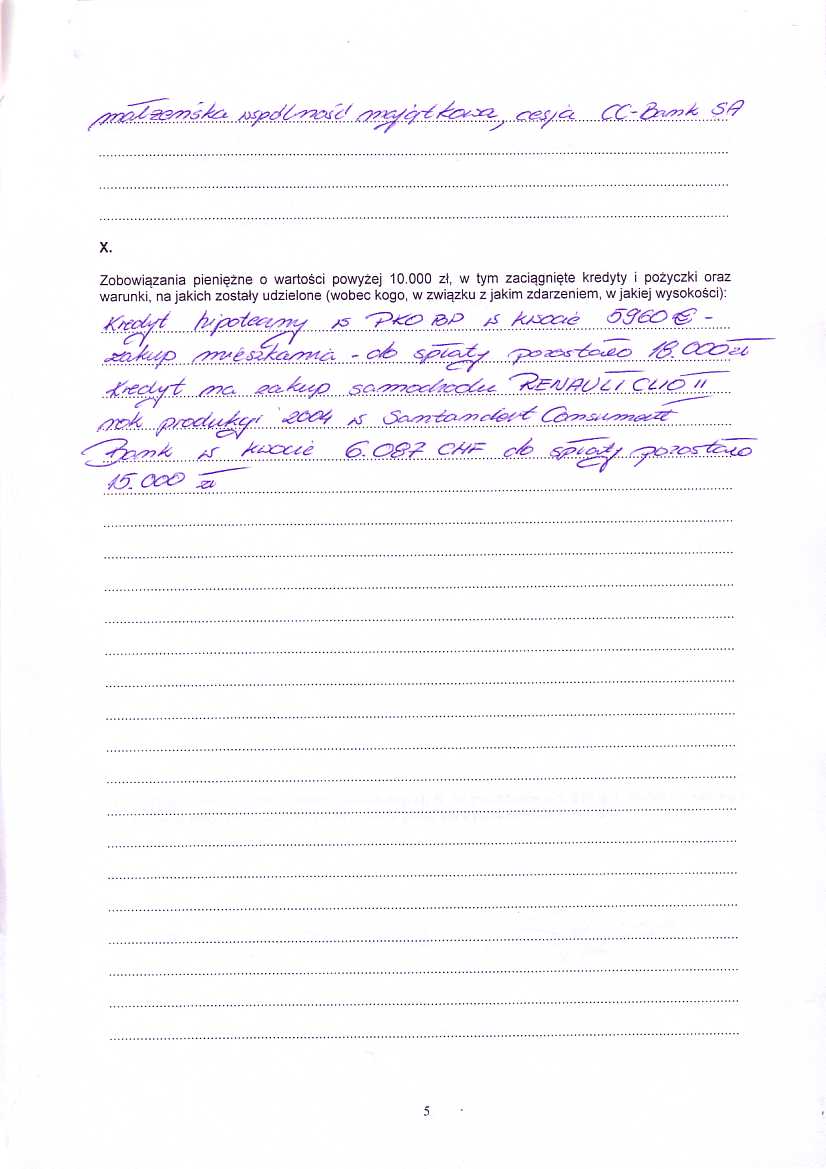 małżeńska wspólność majątkowa, cesja CC-Bank SA
X.
Zobowiązania pieniężne o wartości powyżej 10.000 zł, w tym zaciągnięte kredyty i pożyczki oraz
warunki, na jakich zostały udzielone (wobec kogo, w związku z jakim zdarzeniem, w jakiej wysokości):
Kredyt hipoteczny w PKO BP w kwocie 5960 € -
zakup mieszkania - do spłaty pozostało 18.000 zł
Kredyt na zakup samochodu RENAULT CLIO II
rok produkcji 2004 w Santandert Consument
Bank w kwocie 6.087 CHF do spłaty pozostało
15.000 zł
5